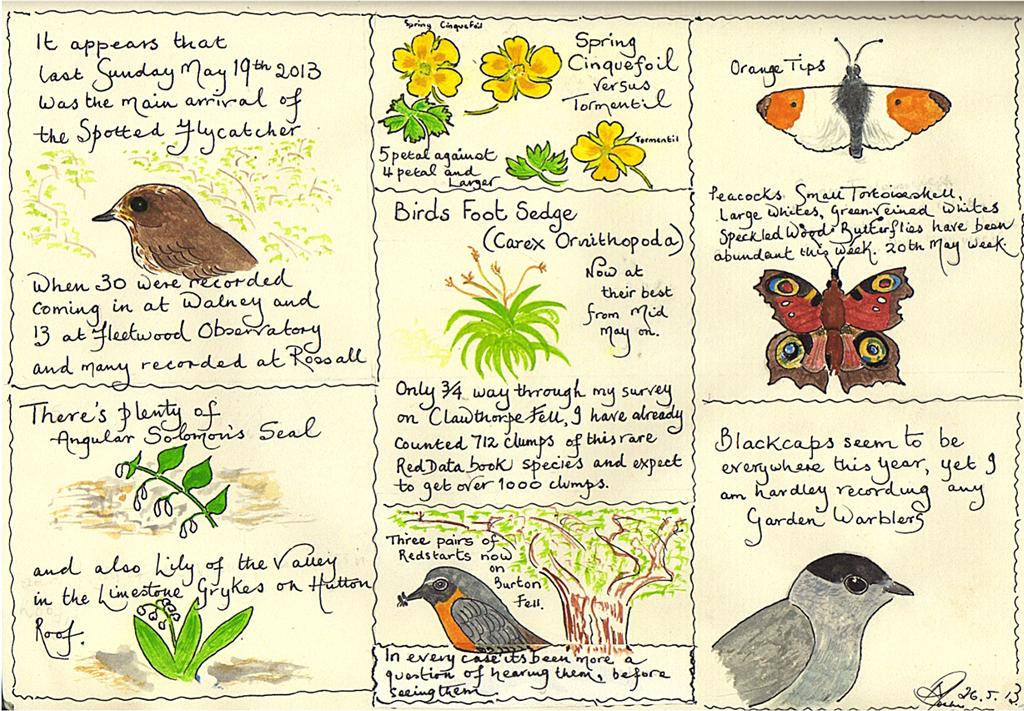 It appears that
last Sunday May 19th 2013
was the main arrival of
the Spotted Flycatcher
When 30 were recorded
coming in at Walney and
13 at Fleetwood Observatory
and many recorded at Rossall
There's plenty of
Angular Solomon's Seal
and also Lily of the Valley
in the Limestone Grykes on Hutton
Roof.
Spring Cinquefoil
Spring
Cinquefoil
versus
Tormentil
Tormentil
5 petal against
4 petal and
Larger
Birds Foot Sedge
(Carex Ornithopoda)
Now at
their best
from Mid
May on.
Only 3/4 way through my survey
on Clawthorpe Fell, I have already
counted 712 clumps of this rare
Red Data book species and expect
to get over 1000 clumps.
Three pairs of
Redstarts now
on
Burton
Fell.
In every case its been more a
question of hearing them, before
seeing them.
Orange Tips
Peacocks. Small Tortoiseshell,
Large Whites, Green-Veined Whites
Speckled Wood Butterflies have been
abundant this week. 20th May week.
Blackcaps seem to be
everywhere this year, yet I
am hardley recording any
Garden Warblers
26.5.13